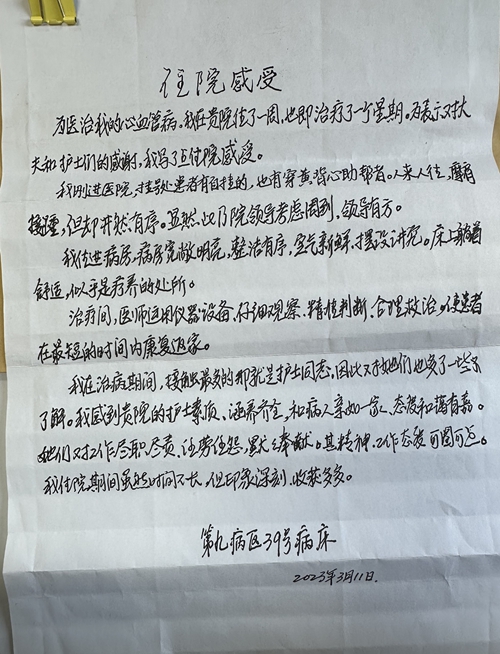 住院感受
为医治我的心血管病。我在贵院住了一周，也即治疗了一个星期。为表示对大
夫和护士们的感谢，我写了住院感受。
我刚进医院，挂号处患者有自挂的，也有穿黄背心助帮者。人来人往，摩肩
接踵，但却井然有序。显然，以乃院领导考虑周到，领导有方。
我住进病房，病房宽敞明亮，整洁有序，空气新鲜，摆设讲究。床上躺着
舒适，似乎是疗养的处所。
治疗间，医师运用仪器设备、仔细观察、精准判断、合理救治，使患者
在最短的时间内康复返家。
我在治病期间，接触最多的那就是护士同志，因此对她们也多了一些
了解。我感到贵院的护士素质、涵养齐全，和病人亲如一家、态度和蔼有嘉。
她们对工作尽职尽责、任劳任怨，默默奉献。其精神、工作态度可圈可点。
我住院期间虽然时间不长，但印象深刻、收获多多。
第九病区39号病床
2023年3月11日.